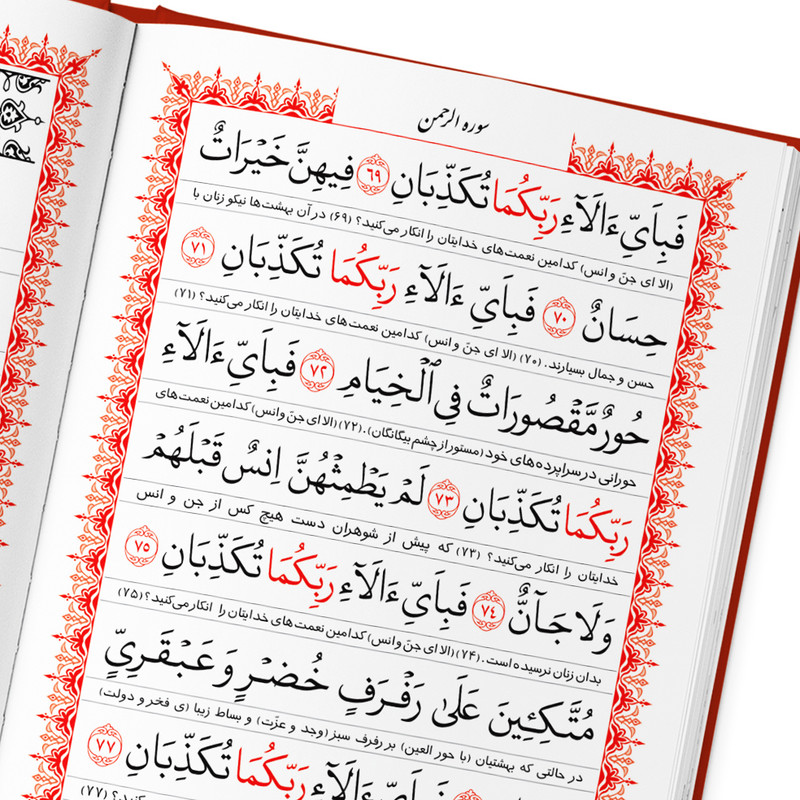 سوره الرحمن
فَبِاَىِّ ءَالَآءِ رَبِّكُمَا تُكَذِّبَانِ ﴿٦٩﴾ فِيهِنَّ خَيْرَاتٌ
(الا ای جنّ و انس) کدامین نعمت‌های خدایتان را انکار می‌کنید؟ (۶۹) در آن بهشت‌ها نیکو زنان با
حِسَانٌ ﴿٧٠﴾ فَبِاَىِّ ءَالَآءِ رَبِّكُمَا تُكَذِّبَانِ ﴿٧١﴾
حسن و جمال بسیارند. (۷۰) (الا ای جنّ و انس) کدامین نعمت‌های خدایتان را انکار می‌کنید؟ (۷۱)
حُورٌ مَّقْصُورَاتٌ فِى ٱلْخِيَامِ ﴿٧٢﴾ فَبِاَىِّ ءَالَآءِ
حورانی در سراپرده‌های خود (مستور از چشم بیگانگان). (۷۲) (الا ای جنّ وانس) کدامین نعمت‌های
رَبِّكُمَا تُكَذِّبَانِ ﴿٧٣﴾ لَمْ يَطْمِثْهُنَّ اِنسٌ قَبْلَهُمْ
خدایتان را انکار می‌کنید؟ (۷۳) که پیش از شوهران دست هیچ کس از جن و انس
وَلَا جَآنٌّ ﴿٧٤﴾ فَبِاَىِّ ءَالَآءِ رَبِّكُمَا تُكَذِّبَانِ ﴿٧٥﴾
بدان زنان نرسیده است. (۷۴) (الا ای جنّ وانس) کدامین نعمت‌های خدایتان را انکار می‌کنید؟ (۷۵)
مُتَّكِـِٔينَ عَلَىٰ رَفْرَفٍ خُضْرٍ وَ عَبْقَرِىٍّ
در حالتی که بهشتیان (با حور العین) بر رفرف سبز (وجد و عزّت) و بساط زیبا (ی فخر و دولت)
فَبِاَىِّ ءَالَآءِ رَبِّكُمَا تُكَذِّبَانِ ﴿٧٧﴾
کنید؟ (۷۷)